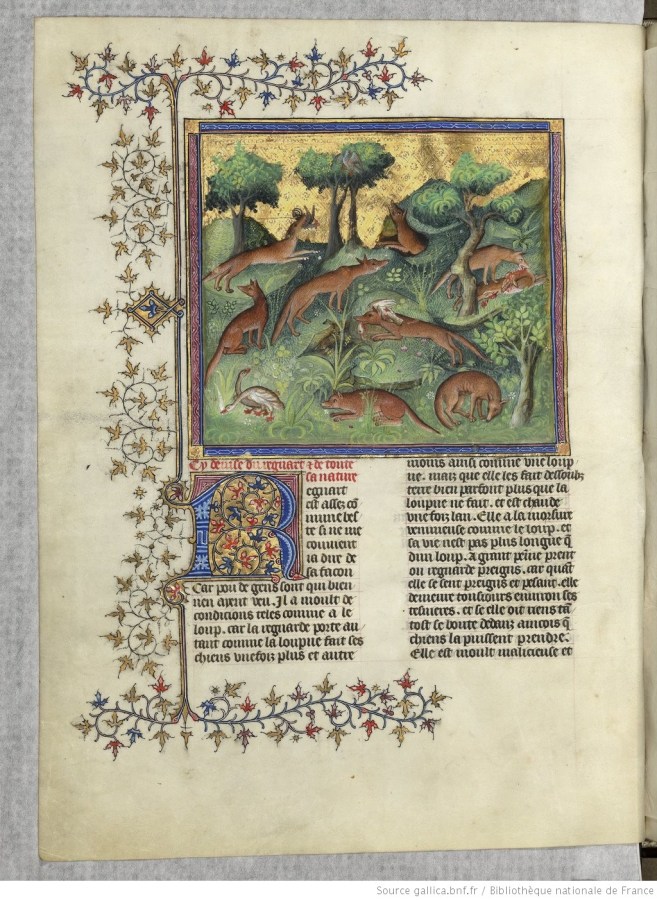 Cy devise du regnart & de toute
sa nature
Regnart
est assez cō
mune bes
te si ne me
convient
ia dire de
sa facon
Car pou de gens sont qui bien
nen aient veu. Il a moult de
condicions teles comme a le
loup. car la regnarde porte au
tant comme la loupue fait ses
chiens vnefoiz plus et autre
moins ainsi comme vne loup
ue. mais que elle les fait dessoubz
terre bien parfont plus que la
loupue ne fait. et est chaude
vnefoiz lan. Elle a la morsure
venimeuse comme le loup. et
sa vie nest pas plus longue q̄
dun loup. A grant peine prent
on regnarde preigns. car quāt
elle se sent preigns et pesant. elle
demeure tousiours enuiron ses
tesnieres. et se elle oit riens tā
tost se boute dedanz aincois q̄
chiens la puissent prendre.
Elle est moult malicieuse et
Source gallica.bnf.fr / Bibliothèque nationale de France